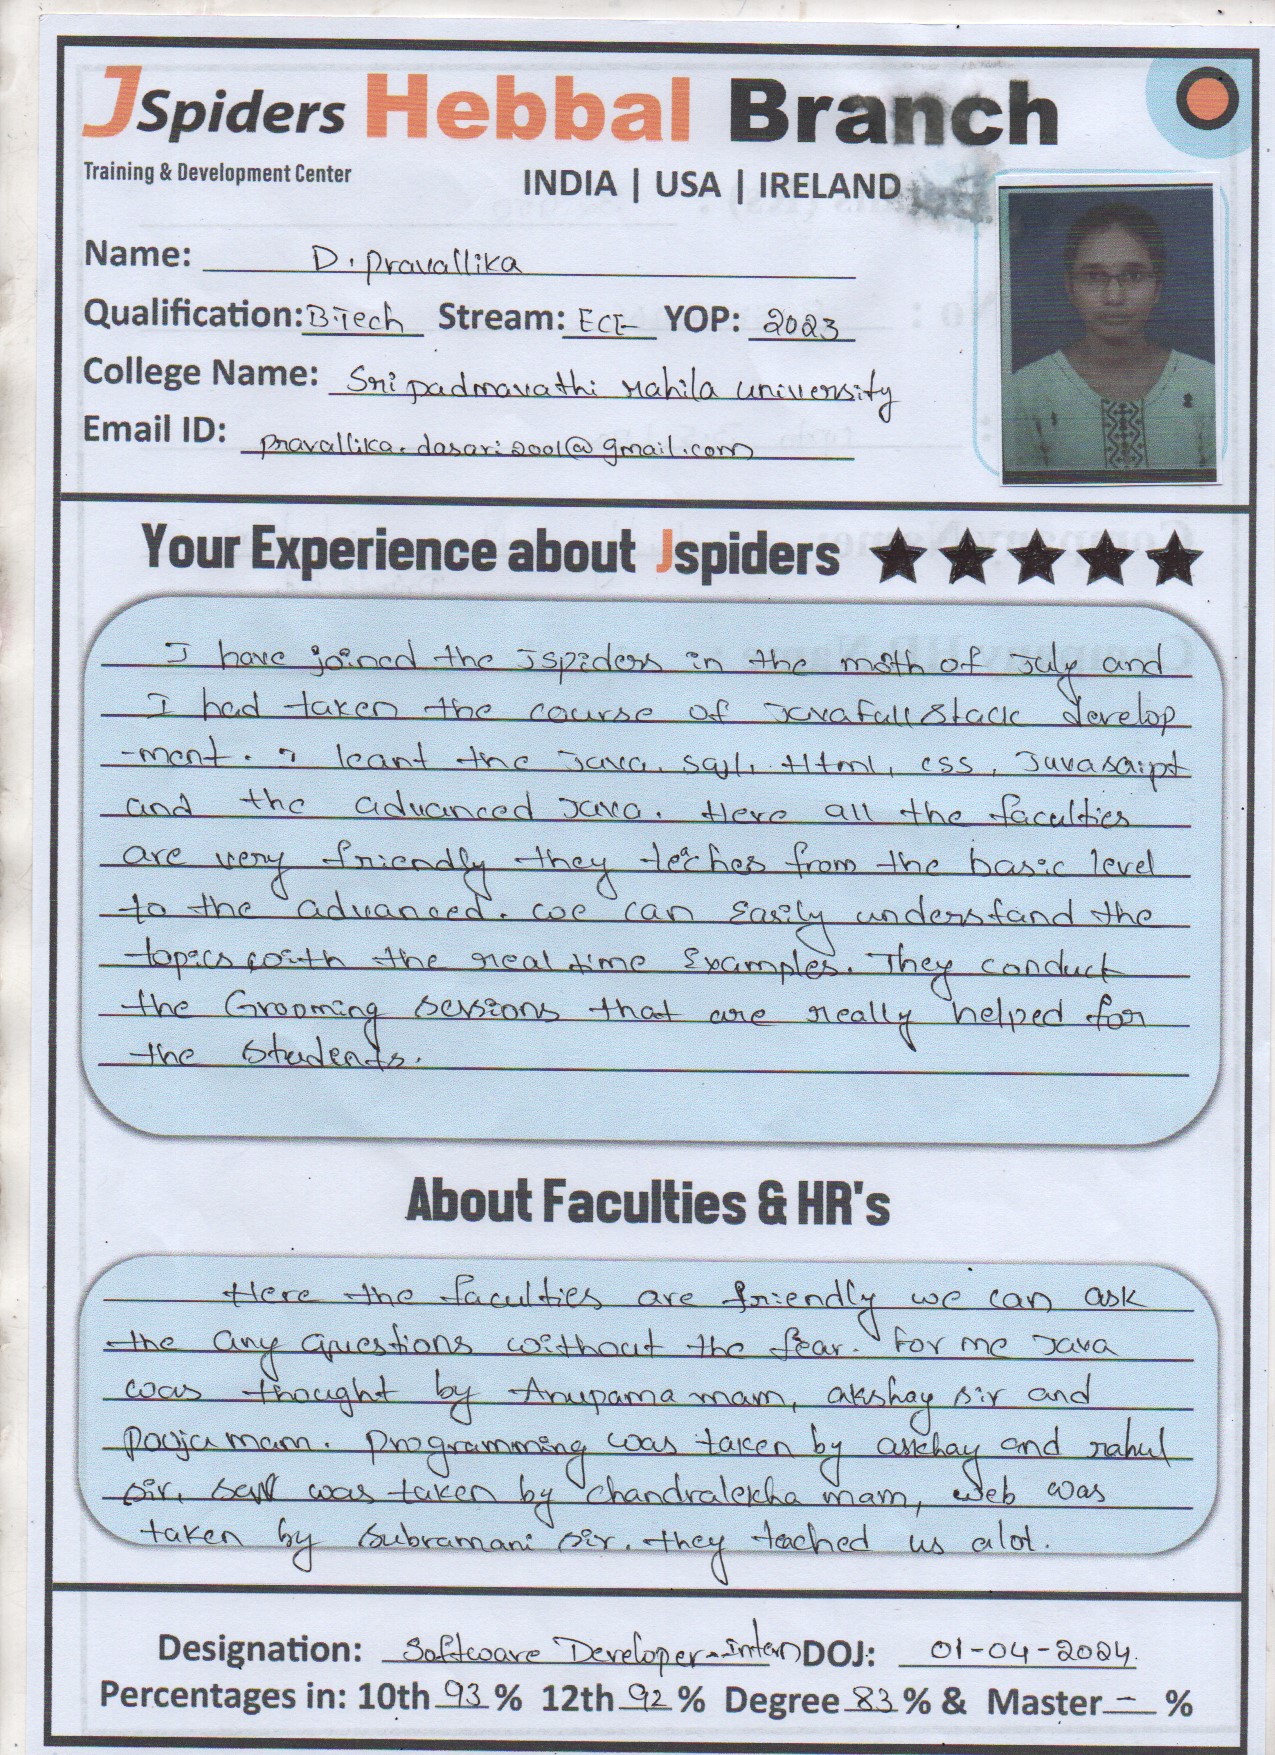 JSpiders Hebbal Branch
Training & Development Center
INDIA | USA | IRELAND
Name: D. Pravallika
Qualification: B.Tech Stream: ECE YOP: 2023
College Name: Sri padmavathi Mahila university
Email ID: pravallika.dasari2001@gmail.com
Your Experience about Jspiders ★★★★★
I have joined the Jspiders in the moth of July and
I had taken the course of JavaFullStack develop
-ment. I leant the Java, sql, Html, css, Javascript
and the advanced Java. Here all the faculties
are very friendly they teaches from the basic level
to the advanced. we can Easily understand the
topics with the real time Examples. They conduct
the Grooming sessions that are really helped for
the students.
About Faculties & HR's
Here the faculties are friendly we can ask
the any questions without the fear. For me Java
was thought by Anupama mam, akshay sir and
Pooja mam. Programming was taken by askhay and rahul
sir. was taken by chandralekha mam, web was
taken by Subramani sir. they teached us alot.
Designation: Software Developer-Intern DOJ: 01-04-2024
Percentages in: 10th 93 % 12th 92 % Degree 83 % & Master - %